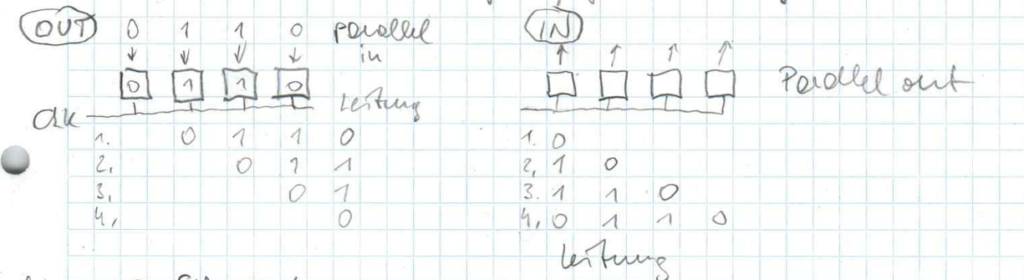 OUT 0 1 1 0 parallel IN
in
0 1 1 0 Parallel out
Leitung
clk
1. 0 1 1 0 1. 0
2. 0 1 1 2, 1 0
3, 0 1 3. 1 1 0
4, 0 4, 0 1 1 0
Leitung